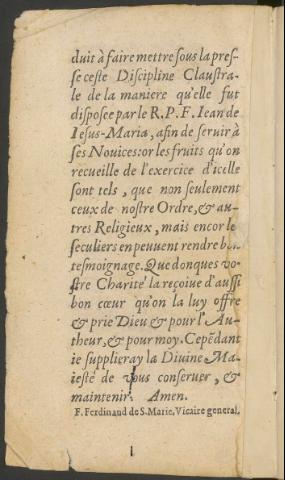 duit à faire mettre sous la pres-
se ceste Discipline Claustra-
le de la maniere qu'elle fut
disposee par le R. P. F. Iean de
Iesus-Maria, afin de seruir à
ses Nouices: or les fruits qu'on
recueille de l'exercice d'icelle
sont tels, que non seulement
ceux de nostre Ordre, & au-
tres Religieux, mais encor le
seculiers en peuuent rendre bon
tesmoignage. Que donques vo-
stre Charité la reçoiue d'aussi
bon cœur qu'on la luy offre
& prie Dieu & pour l'Au-
theur, & pour moy. Cepẽdant
ie supplieray la Diuine Ma-
iesté de vous conseruer, &
maintenir. Amen.
F. Ferdinand de S. Marie, Vicaire general.